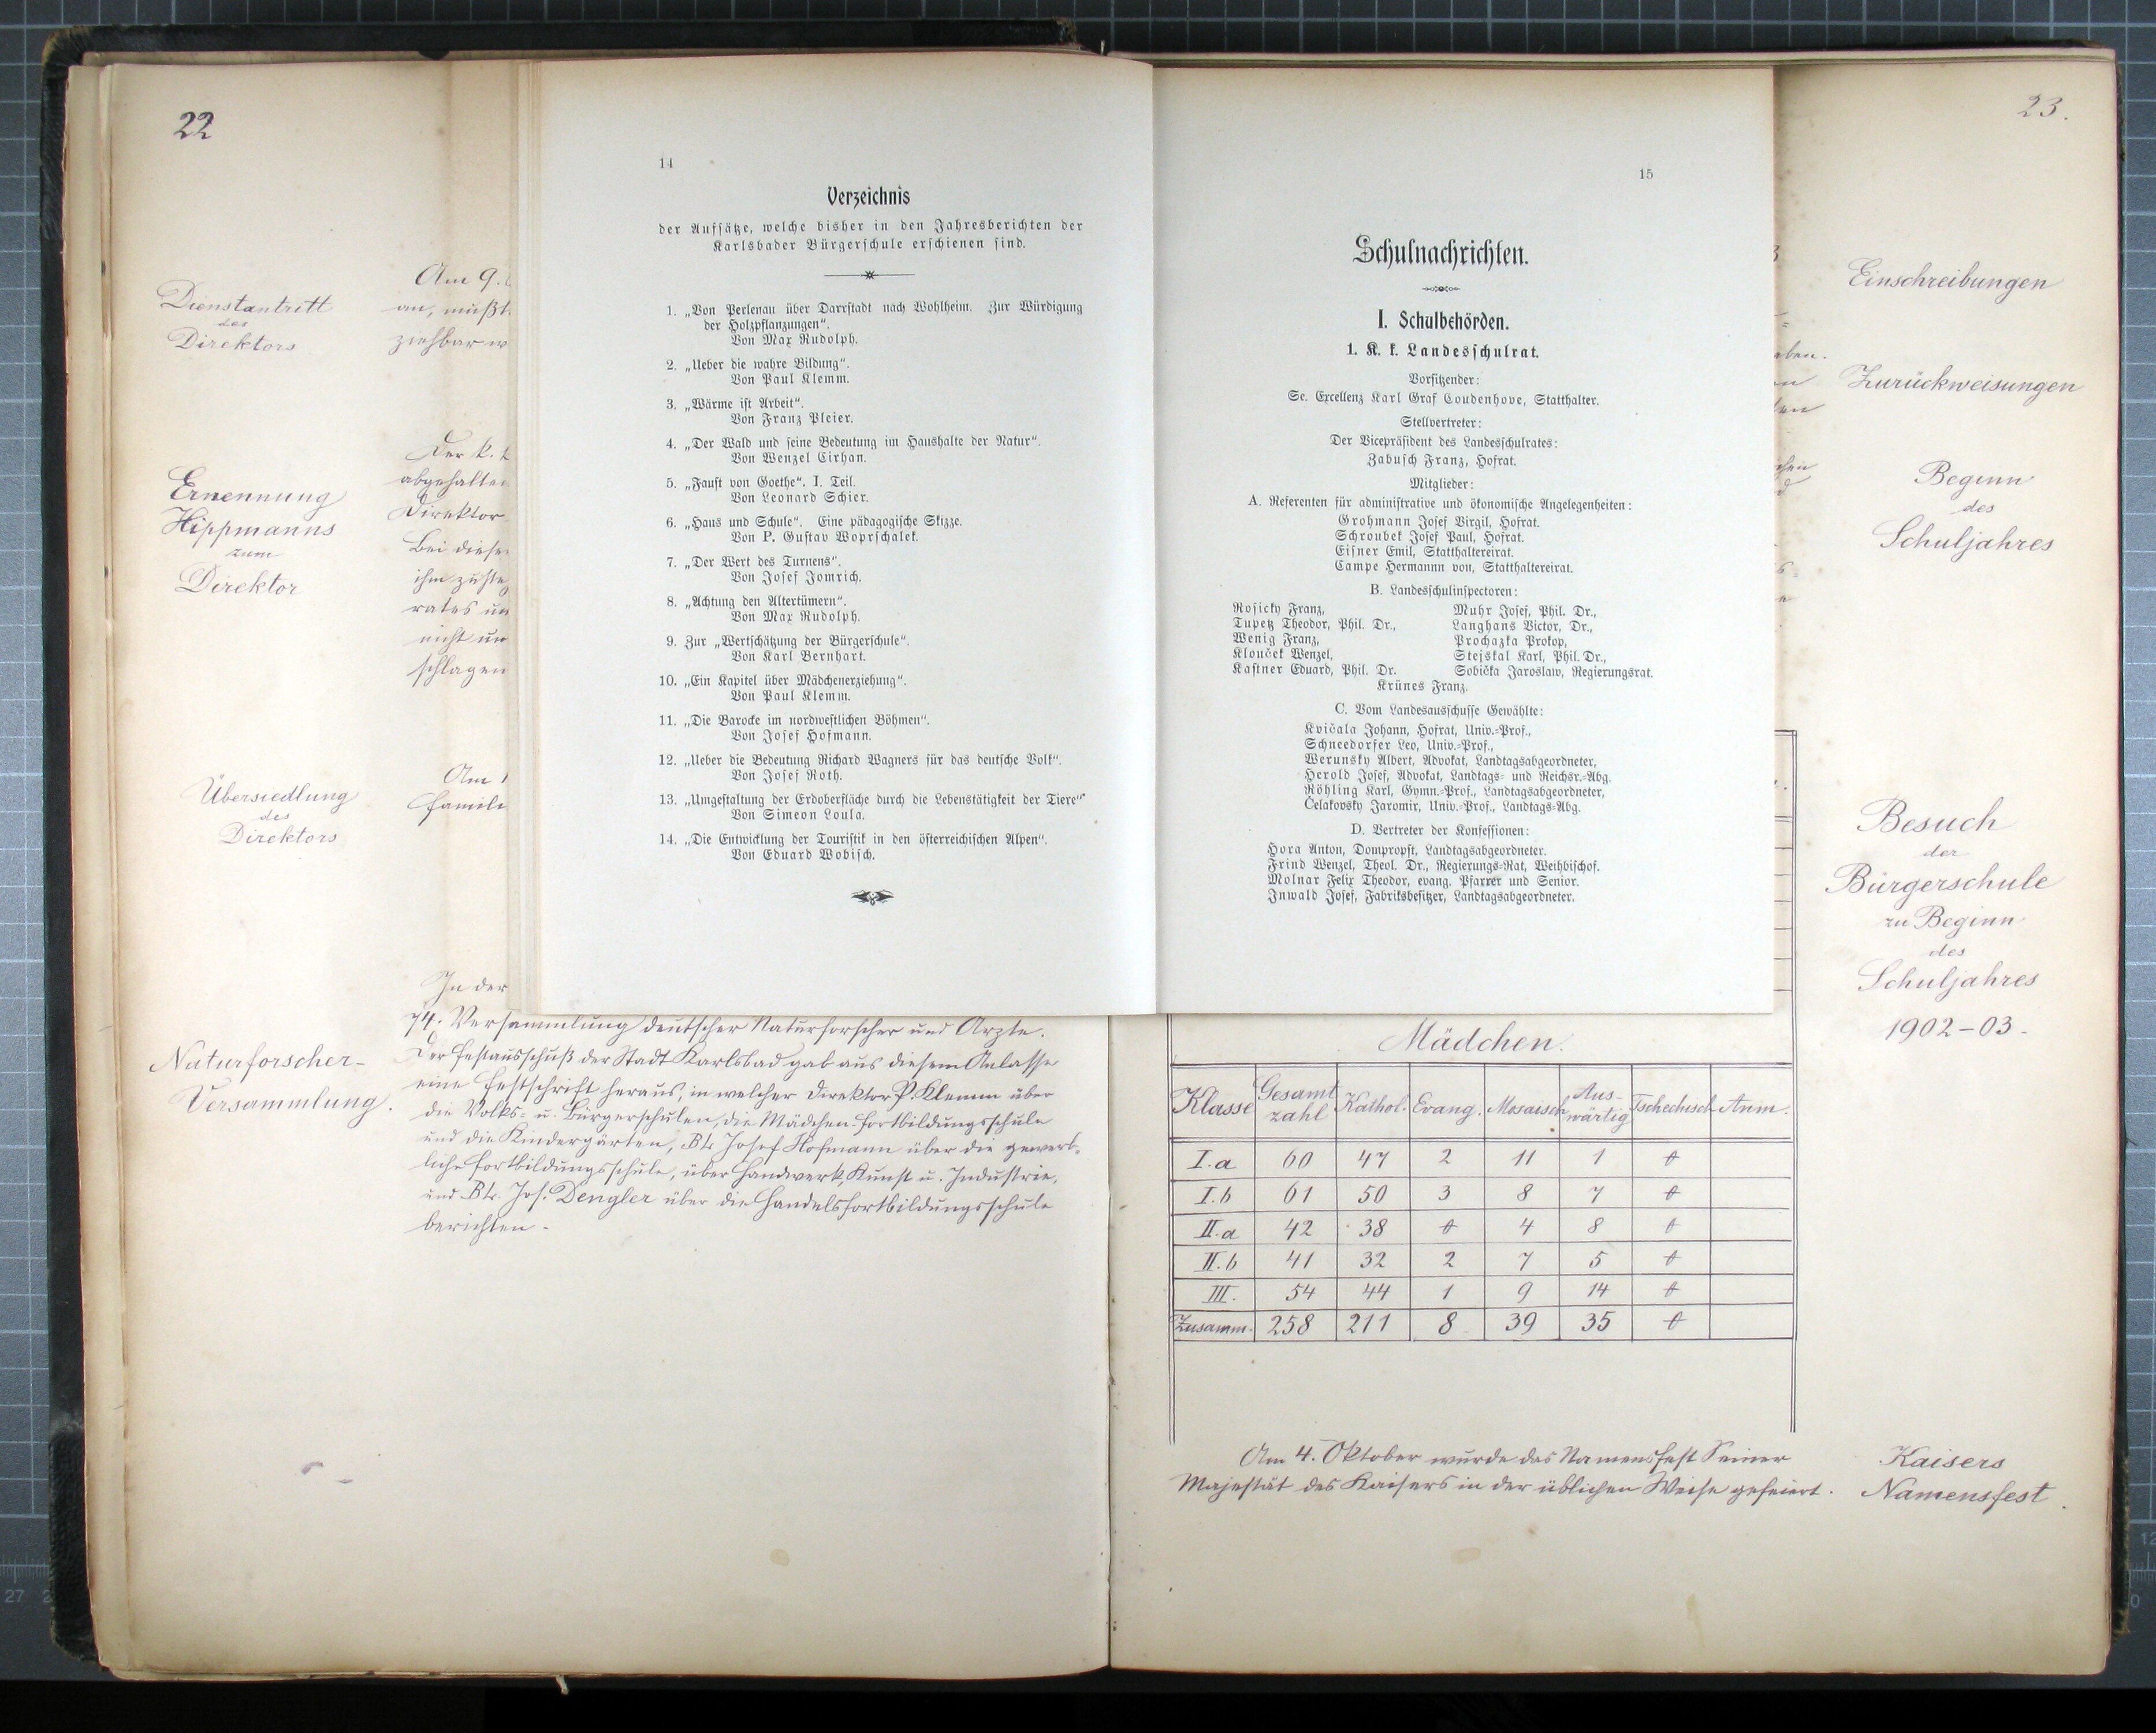 22
Dienstantritt
des
Direktors
Am 9.
an, mußt
ziehbar w
Ernennung
Hippmanns
zum
Direktor
Der k. k
abgehalten
Direktor
Bei diese
ihm zuste
rates un
nicht un
schlagen
Übersiedlung
des
Direktors
Am 1
Famili
Naturforscher-
Versammlung.
In der
74. Versammlung deutscher Naturforscher und Ärzte.
Der Festausschuß der Stadt Karlsbad gab aus diesem Anlasse
eine Festschrift heraus, in welcher Direktor P. Klemm über
die Volks- u. Bürgerschulen, die Mädchen-Fortbildungsschule
und die Kindergärten, Btr Josef Hofmann über die gewerb-
liche Fortbildungsschule, über Handwerk, Kunst u. Industrie,
und Btr. Jos. Dengler über die Handelsfortbildungsschule
berichten.
14
Verzeichnis
der Aufsätze, welche bisher in den Jahresberichten der
Karlsbader Bürgerschule erschienen sind.
1. „Von Perlenau über Darrstadt nach Wohlheim. Zur Würdigung
der Holzpflanzungen“.
Von Max Rudolph.
2. „Ueber die wahre Bildung“.
Von Paul Klemm.
3. „Wärme ist Arbeit“.
Von Franz Pleier.
4. „Der Wald und seine Bedeutung im Haushalte der Natur“.
Von Wenzel Cirhan.
5. „Faust von Goethe“. I. Teil.
Von Leonard Schier.
6. „Haus und Schule“. Eine pädagogische Skizze.
Von P. Gustav Woprschalek.
7. „Der Wert des Turnens“.
Von Josef Jomrich.
8. „Achtung den Altertümern“.
Von Max Rudolph.
9. Zur „Wertschätzung der Bürgerschule“.
Von Karl Bernhart.
10. „Ein Kapitel über Mädchenerziehung“.
Von Paul Klemm.
11. „Die Barocke im nordwestlichen Böhmen“.
Von Josef Hofmann.
12. „Ueber die Bedeutung Richard Wagners für das deutsche Volk“.
Von Josef Roth.
13. „Umgestaltung der Erdoberfläche durch die Lebenstätigkeit der Tiere“
Von Simeon Loula.
14. „Die Entwicklung der Touristik in den österreichischen Alpen“.
Von Eduard Wobisch.
15
Schulnachrichten.
I. Schulbehörden.
1. K. k. Landesschulrat.
Vorsitzender:
Se. Excellenz Karl Graf Coudenhove, Statthalter.
Stellvertreter:
Der Vicepräsident des Landesschulrates:
Zabusch Franz, Hofrat.
Mitglieder:
A. Referenten für administrative und ökonomische Angelegenheiten:
Grohmann Josef Virgil, Hofrat.
Schroubek Josef Paul, Hofrat.
Eisner Emil, Statthaltereirat.
Campe Hermannn von, Statthaltereirat.
B. Landesschulinspectoren:
Rosicky Franz, Muhr Josef, Phil. Dr.,
Tupetz Theodor, Phil. Dr., Langhans Victor, Dr.,
Wenig Franz, Prochazka Prokop,
Klouček Wenzel, Stejskal Karl, Phil. Dr.,
Kastner Eduard, Phil. Dr. Sobička Jaroslaw, Regierungsrat.
Krünes Franz.
C. Vom Landesausschusse Gewählte:
Kvičala Johann, Hofrat, Univ.-Prof.,
Schneedorfer Leo, Univ.-Prof.,
Werunsky Albert, Advokat, Landtagsabgeordneter,
Herold Josef, Advokat, Landtags- und Reichsr.-Abg.
Röhling Karl, Gymn.-Prof., Landtagsabgeordneter,
Čelakovsky Jaromir, Univ.-Prof., Landtags-Abg.
D. Vertreter der Konfessionen:
Hora Anton, Dompropst, Landtagsabgeordneter.
Frind Wenzel, Theol. Dr., Regierungs-Rat, Weihbischof.
Molnar Felix Theodor, evang. Pfarrer und Senior.
Inwald Josef, Fabriksbesitzer, Landtagsabgeordneter.
23.
Einschreibungen
Zurückweisungen
Beginn
des
Schuljahres
Besuch
der
Bürgerschule
zu Beginn
des
Schuljahres
1902-03.
Mädchen.
Klasse Gesamt zahl Kathol. Evang. Mosaisch Aus- wärtig Tschechisch Anm.
I.a 60 47 2 11 1 0
I.b 61 50 3 8 7 0
II.a 42 38 0 4 8 0
II.b 41 32 2 7 5 0
III. 54 44 1 9 14 0
Zusamm. 258 211 8 39 35 0
Am 4. Oktober wurde das Namensfest Seiner
Majestät des Kaisers in der üblichen Weise gefeiert.
Kaisers
Namensfest.
27